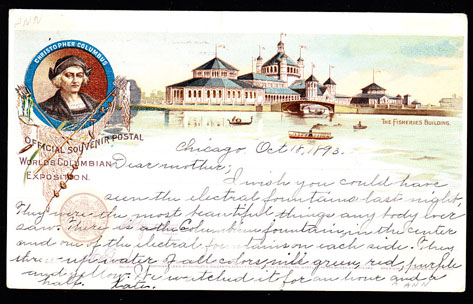 CHRISTOPHER COLUMBUS
OFFICIAL SOUVENIR POSTAL
WORLD'S COLUMBIAN
EXPOSITION.
THE FISHERIES BUILDING.
Chicago Oct 18, 1893.
Dear mother,
I wish you could have
seen the electral fountains last night,
They were the most beautiful things any body ever
saw. There is the Columbian fountain, in the center
and one of the electral fountains on each side. They
threw up water of all colors, green, red, purple
and yellow. We watched it for an hour and a
half. Kate.